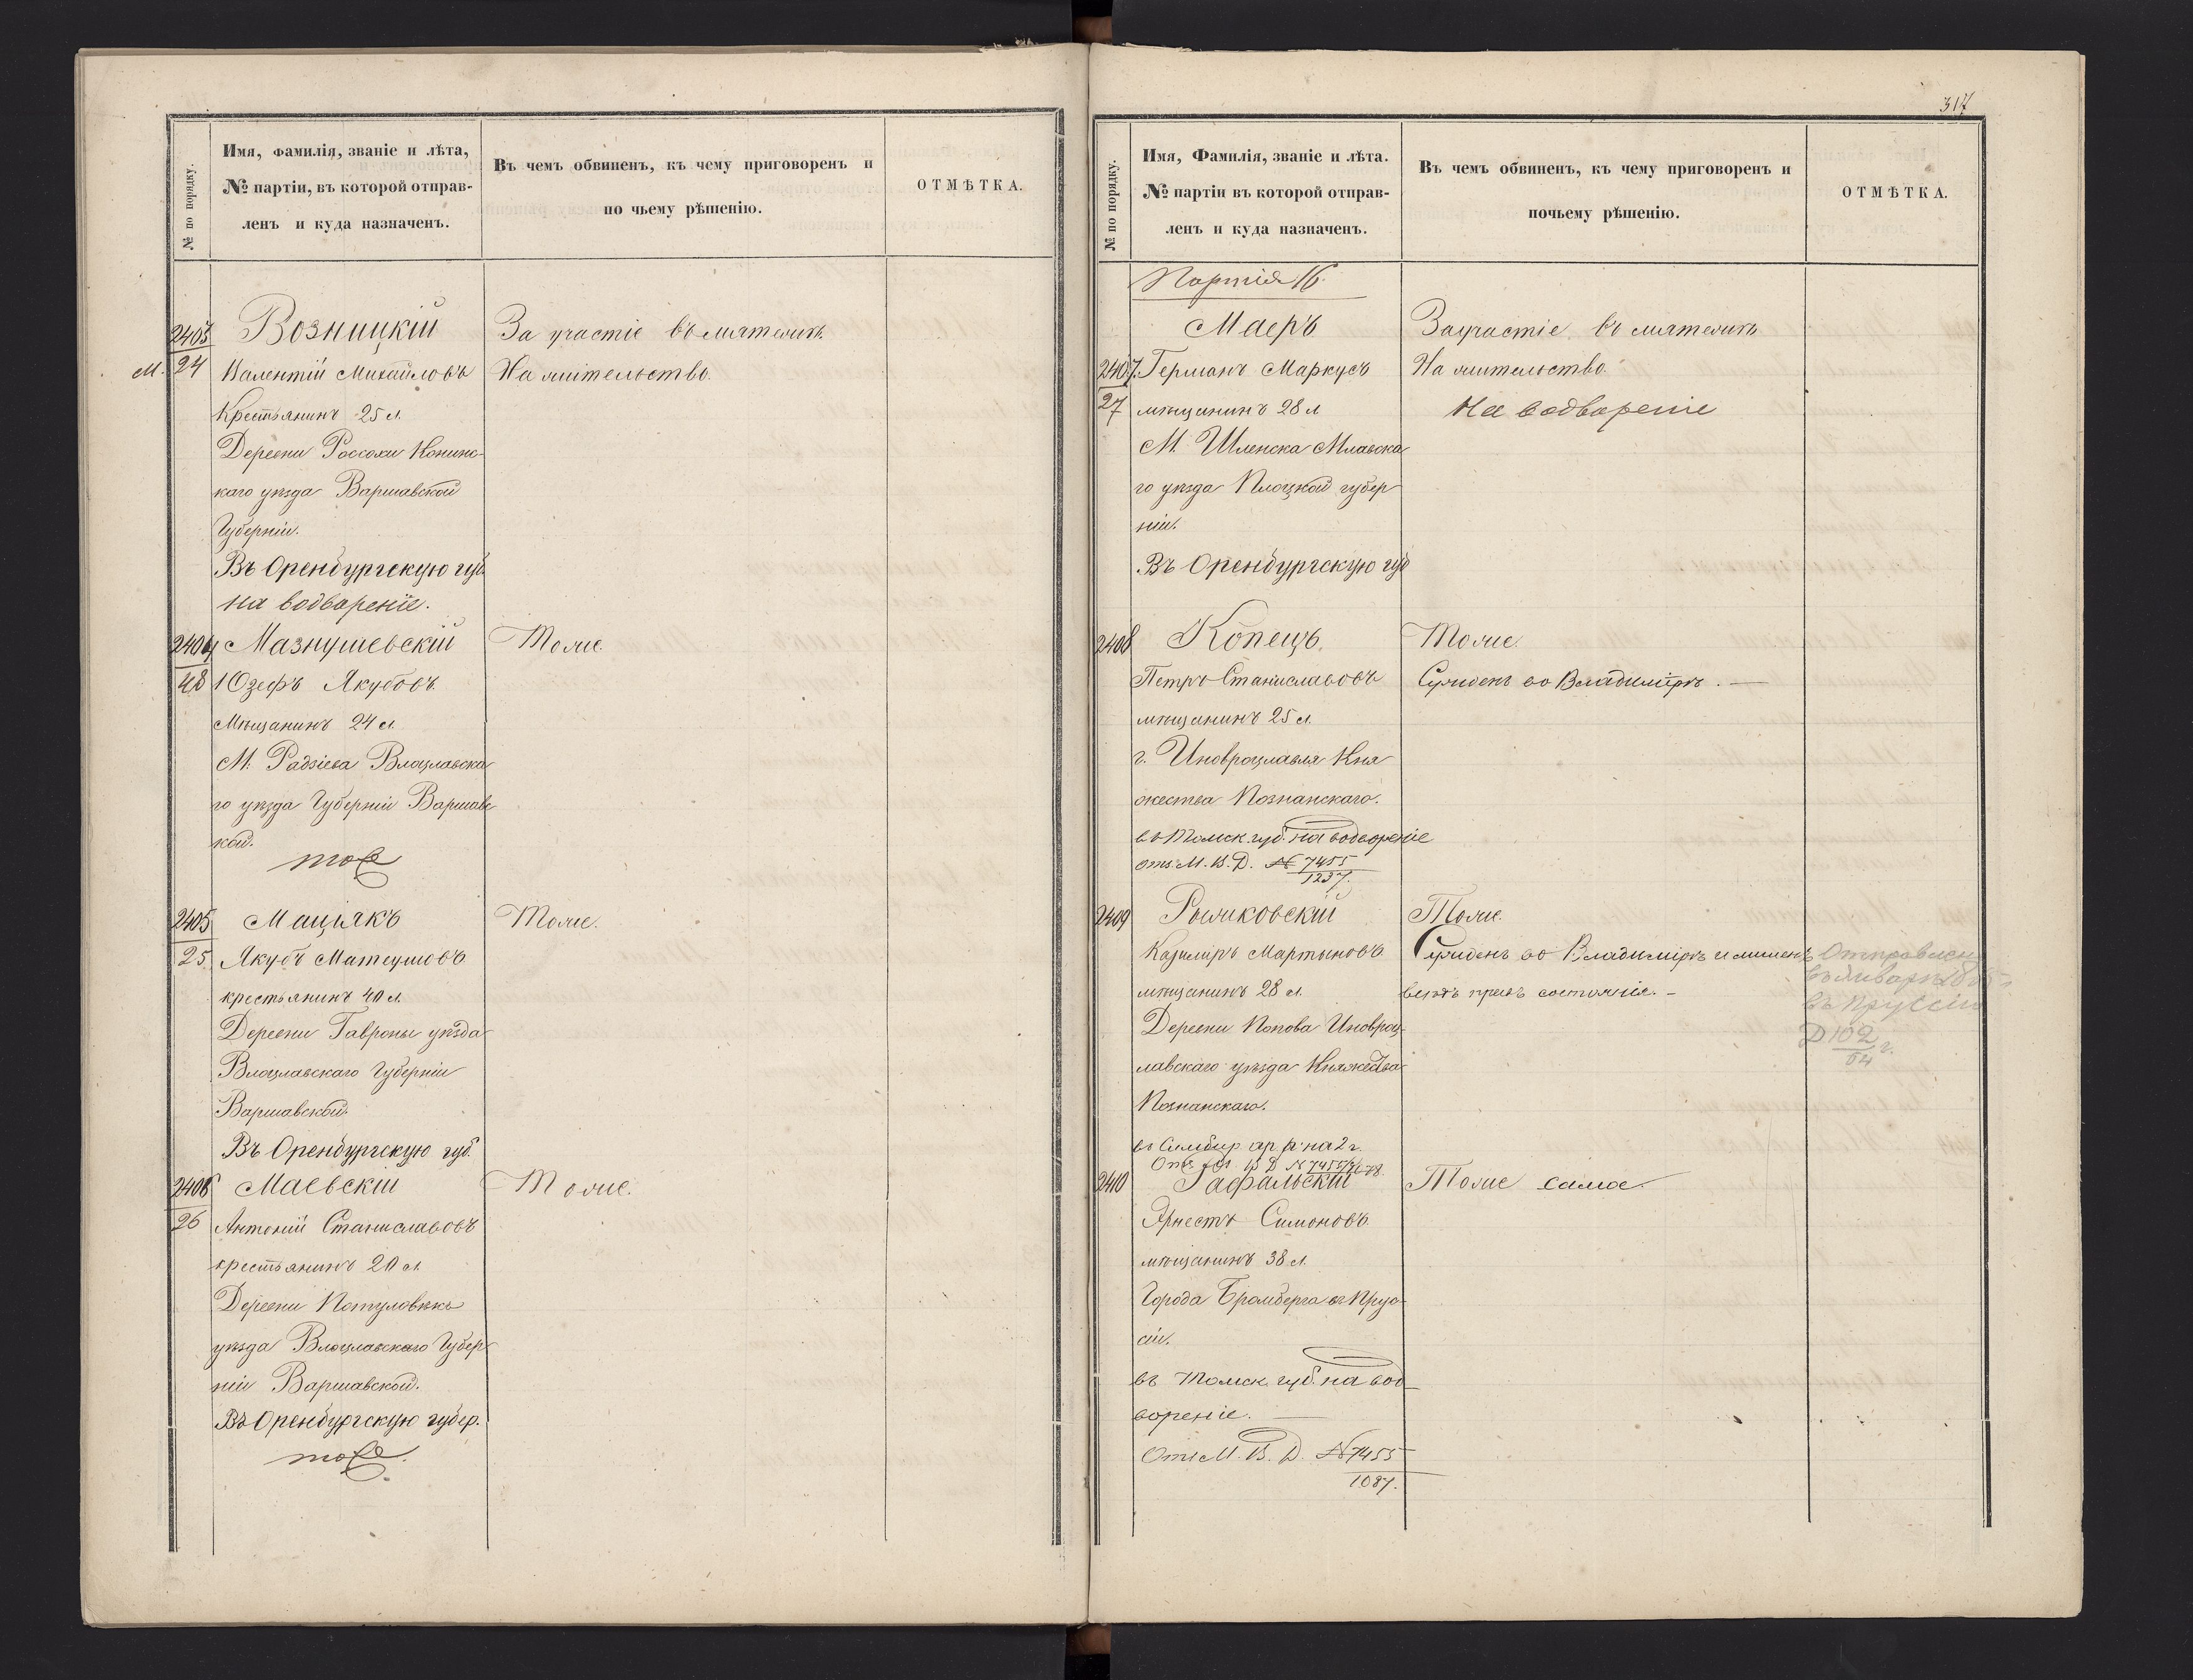 № по порядку.
Имя, фамилія, званіе и лѣта,
№ партіи, въ которой отправ-
ленъ и куда назначенъ.
Въ чемъ обвиненъ, къ чему приговоренъ и
по чьему рѣшенію.
ОТМѢТКА.
2403
Возницкій
За участіе въ мятежѣ
М. 24
Валентій Михайловъ
На жительство.
Крестьянинъ 25 л.
Деревни Россохи Конинс-
каго уѣзда Варшавской
Губерніи.
Въ Оренбургскую губ.
на водвореніе.
2404
Мазнушевскій
Тоже
48
Юзефъ Якубовъ.
Мѣщанинъ 24 л.
М. Радзіева Влоцлавска
го уѣзда Губерніи Варшавс
кой.
тоже
2405
Маціякъ
Тоже.
25
Якубъ Матеушовъ
крестьянинъ 40 л.
Деревни Гавроны уѣзда
Влоцлавскаго Губерніи
Варшавской.
Въ Оренбургскую губ.
2406
Маевскій
Тоже.
26
Антоній Станиславовъ
крестьянинъ 20 л.
Деревни
уѣзда Влоцлавскаго Губер
ніи Варшавской.
Въ Оренбургскую губер.
тоже.
317
№ по порядку.
Имя, Фамилія, званіе и лѣта.
№ партіи въ которой отправ-
ленъ и куда назначенъ.
Въ чемъ обвиненъ, къ чему приговоренъ и
почьему рѣшенію.
ОТМѢТКА.
Партія 16.
Маеръ
За участіе въ мятежѣ
2407.
Германъ Маркусъ
На жительство.
27
мѣщанинъ 28 л
На водвореніе
М. Шленска Млавска
го уѣзда Плоцкой губер
ніи.
Въ Оренбургскую губ
2408
Копецъ.
Тоже.
Петръ Станиславовъ
Сужденъ во Владимірѣ. —
мѣщанинъ 25 л.
г. Иновроцлавля Кня
жества Познанскаго.
въ Томск. губ. на водвореніе
отъ М. В. Д. № 7455
1237.
2409
Рыжковскій
Тоже.
Казиміръ Мартыновъ
Сужденъ во Владимірѣ и лишенъ
Отправленъ
мѣщанинъ 28 л.
всѣхъ правъ состоянія. —
въ Пруссію
Деревни Попова Иновроц-
Д 102
лавскаго уѣзда Княжества
Познанскаго.
въ Симбир. ар. р. на 2 г.
2410
Рафальскій
Тоже самое.
Эрнестъ Симоновъ.
мѣщанинъ 38 л.
Города Бромберга въ Прус-
сіи.
въ Томск. губ. на вод-
вореніе. —
Отъ М. В. Д. № 7455
1087.